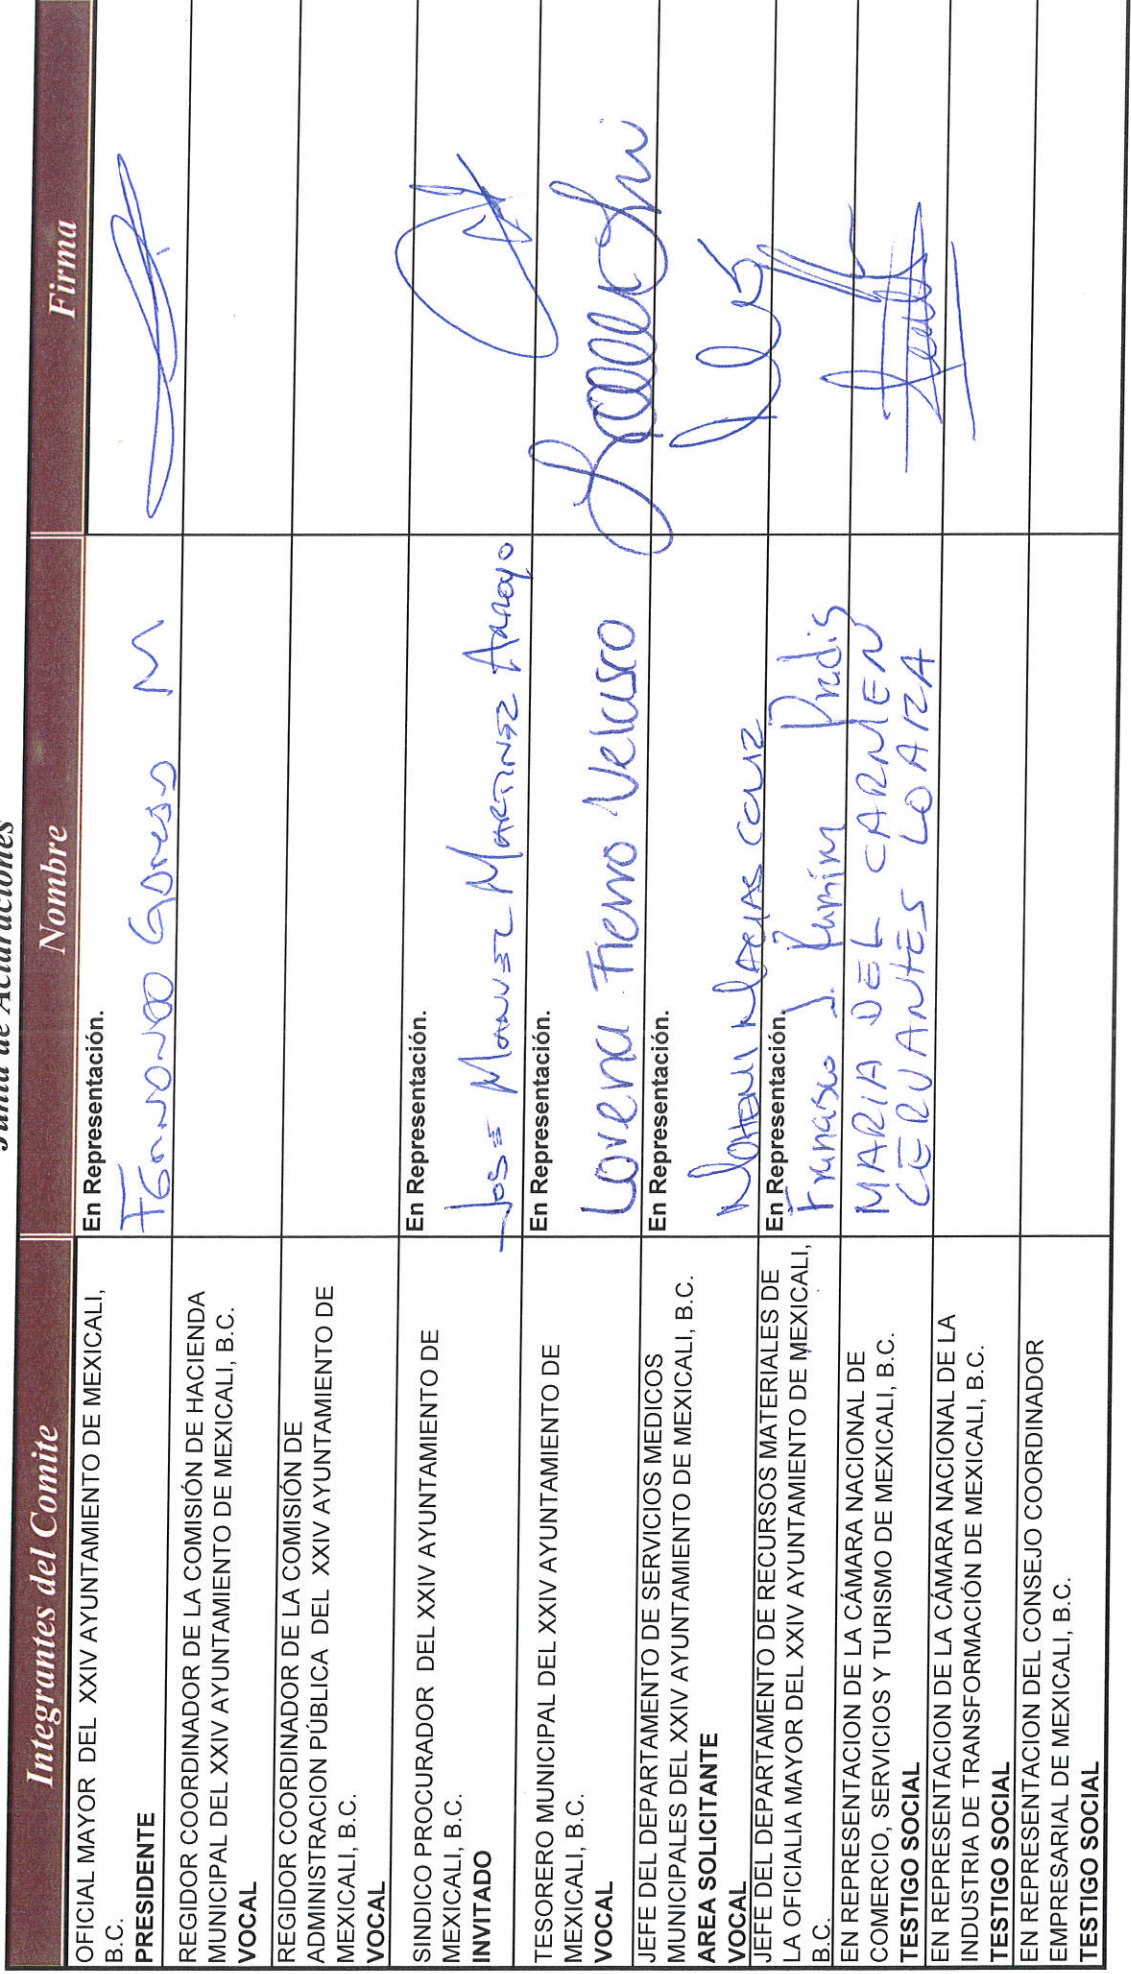 Junta de Aclaraciones
Integrantes del Comite
Nombre
Firma
OFICIAL MAYOR DEL XXIV AYUNTAMIENTO DE MEXICALI,
B.C.
PRESIDENTE
En Representación.
REGIDOR COORDINADOR DE LA COMISIÓN DE HACIENDA
MUNICIPAL DEL XXIV AYUNTAMIENTO DE MEXICALI, B.C.
VOCAL
REGIDOR COORDINADOR DE LA COMISIÓN DE
ADMINISTRACION PÚBLICA DEL XXIV AYUNTAMIENTO DE
MEXICALI, B.C.
VOCAL
SINDICO PROCURADOR DEL XXIV AYUNTAMIENTO DE
MEXICALI, B.C.
INVITADO
En Representación.
Jose Manuel Martinez Arroyo
TESORERO MUNICIPAL DEL XXIV AYUNTAMIENTO DE
MEXICALI, B.C.
VOCAL
En Representación.
Lorena Fierro Velasco
JEFE DEL DEPARTAMENTO DE SERVICIOS MEDICOS
MUNICIPALES DEL XXIV AYUNTAMIENTO DE MEXICALI, B.C.
AREA SOLICITANTE
VOCAL
En Representación.
JEFE DEL DEPARTAMENTO DE RECURSOS MATERIALES DE
LA OFICIALIA MAYOR DEL XXIV AYUNTAMIENTO DE MEXICALI,
B.C.
En Representación.
Francisco J.
EN REPRESENTACION DE LA CÁMARA NACIONAL DE
COMERCIO, SERVICIOS Y TURISMO DE MEXICALI, B.C.
TESTIGO SOCIAL
MARIA DEL CARMEN
CERVANTES LOAIZA
EN REPRESENTACION DE LA CÁMARA NACIONAL DE LA
INDUSTRIA DE TRANSFORMACIÓN DE MEXICALI, B.C.
TESTIGO SOCIAL
EN REPRESENTACION DEL CONSEJO COORDINADOR
EMPRESARIAL DE MEXICALI, B.C.
TESTIGO SOCIAL